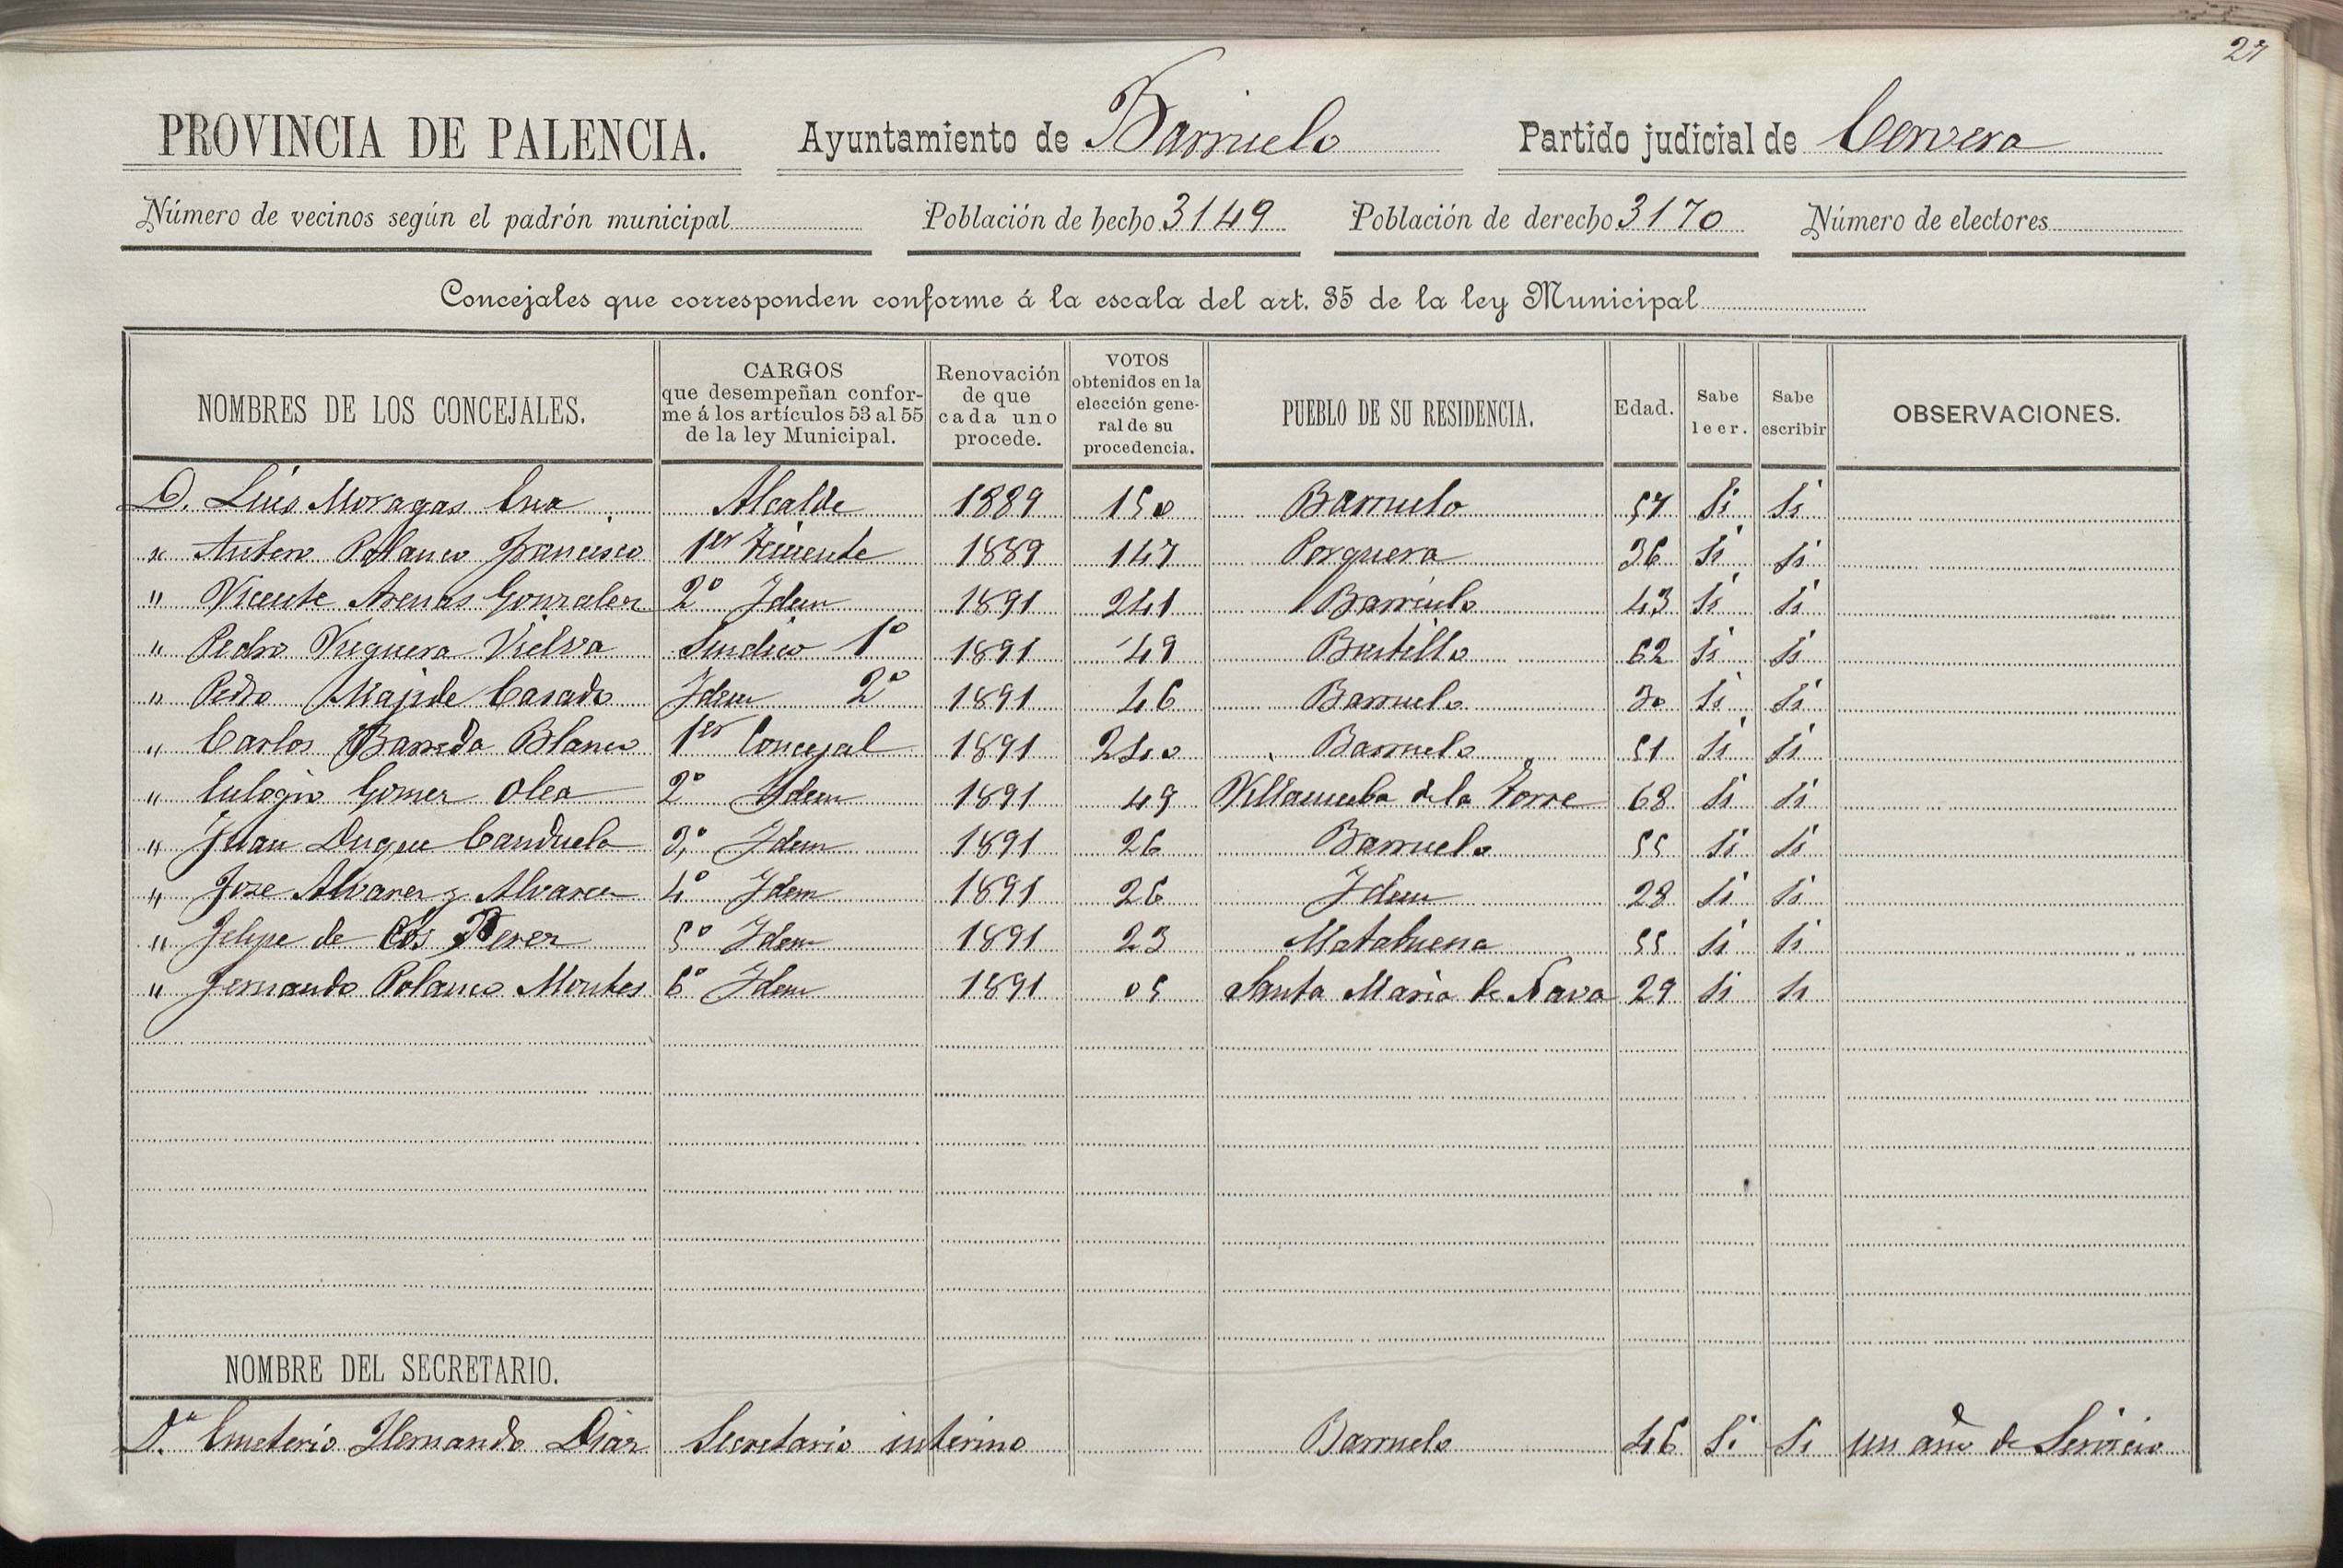 27
PROVINCIA DE PALENCIA. Ayuntamiento de Barruelo Partido judicial de Cervera
Número de vecinos según el padrón municipal Población de hecho 3149 Población de derecho 3170 Número de electores
Concejales que corresponden conforme á la escala del art. 35 de la ley Municipal
NOMBRES DE LOS CONCEJALES. CARGOS que desempeñan conforme á los artículos 53 al 55 de la ley Municipal. Renovación de que cada uno procede. VOTOS obtenidos en la elección general de su procedencia. PUEBLO DE SU RESIDENCIA. Edad. Sabe leer. Sabe escribir OBSERVACIONES.
D. Luis Moragas Alcalde 1889 150 Barruelo 57 Si Si
" Antero Polanco Francisco 1er Teniente 1889 147 Porquera 36 Si Si
" Vicente Arenas Gonzalez 2º Idem 1891 241 Barruelo 43 Si Si
" Pedro Vielva Sindico 1º 1891 49 Bustillo 62 Si Si
" Pedro Majide Casado Idem 2º 1891 46 Barruelo 30 Si Si
" Carlos Barreda Blanco 1er Concejal 1891 240 Barruelo 51 Si Si
" Eulogio Gomez Olea 2º Idem 1891 49 Villanueba de la Torre 68 Si Si
" Juan Duque Canduela 3º Idem 1891 26 Barruelo 55 Si Si
" Jose Alvarez y Alvarez 4º Idem 1891 26 Idem 28 Si Si
" Felipe de Cos Perez 5º Idem 1891 23 Matabuena 55 Si Si
" Fernando Polanco Montes 6º Idem 1891 05 Santa Maria de Nava 29 Si Si
NOMBRE DEL SECRETARIO.
Dn Emeterio Hernando Diaz Secretario interino Barruelo 46 Si Si un año de Servicio